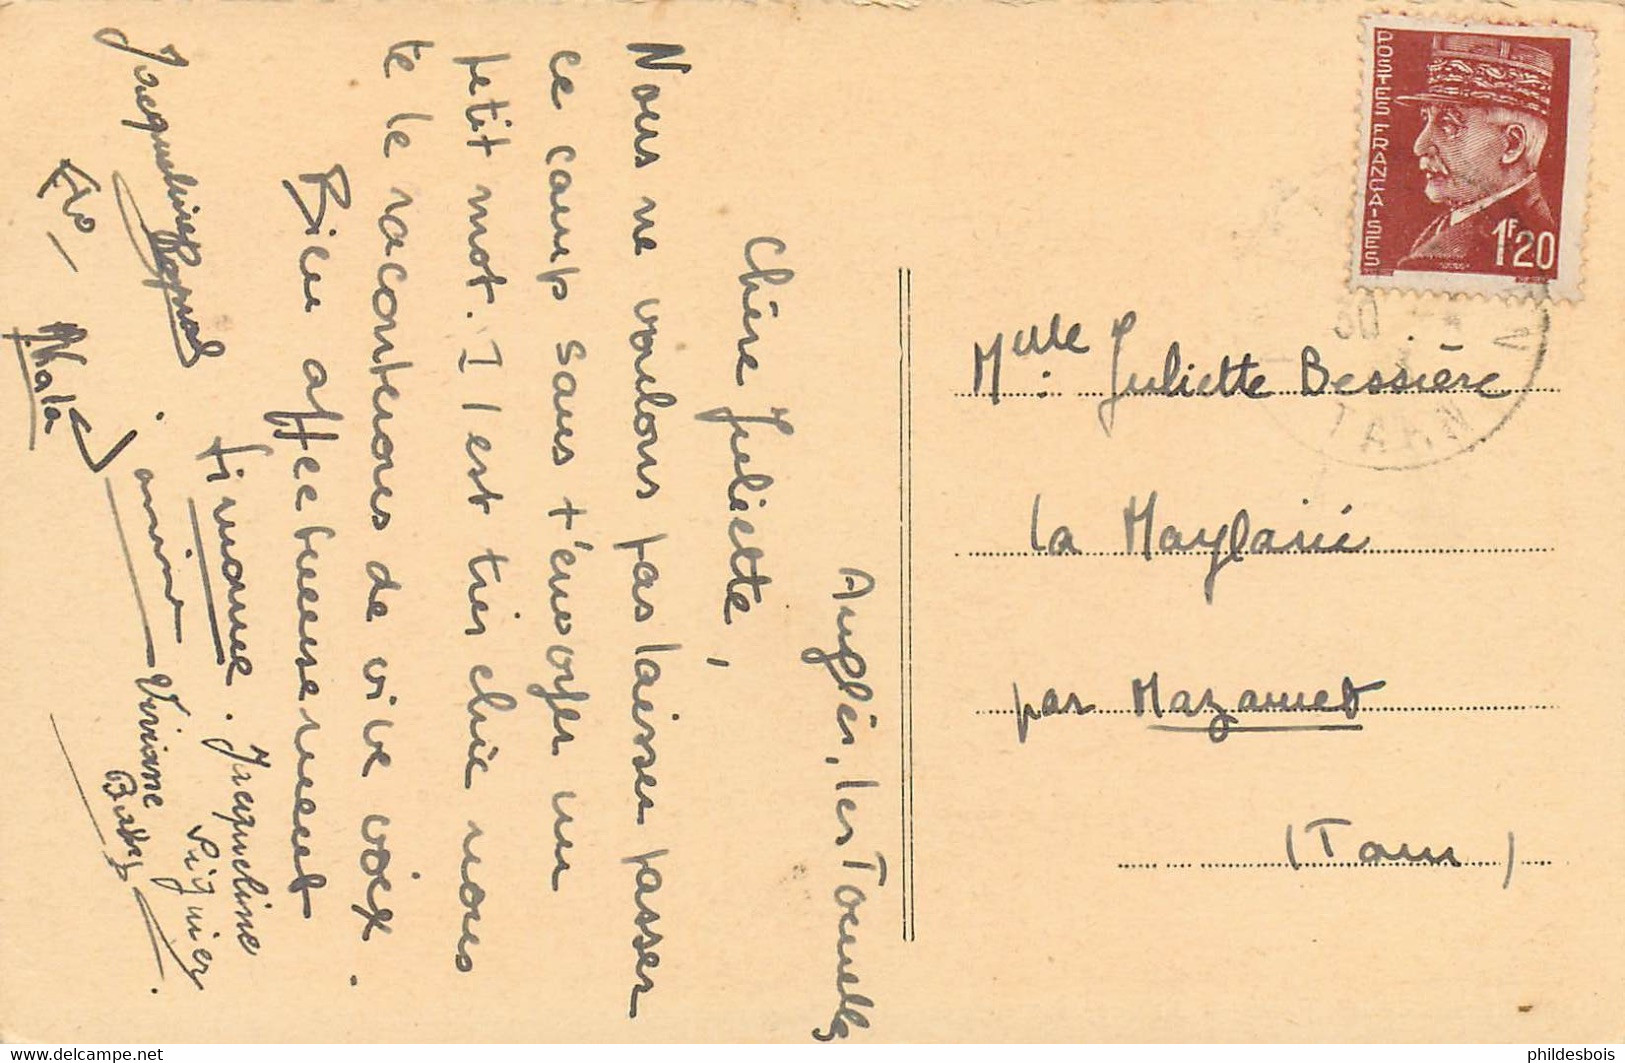 Anglès, les Tournelles
Chère Juliette,
Nous ne voulons pas laisser passer
ce camp sans t'envoyer un
petit mot. Il est très chic nous
te le raconterons de vive voix.
Bien affectueusement.
Simone. Jacqueline
Viguier
Jacqueline
Viviane
POSTES FRANÇAISES
1F20
TARN
Melle: Juliette Bessière
la Maylarié
par Mazamet
(Tarn)
phildesbois